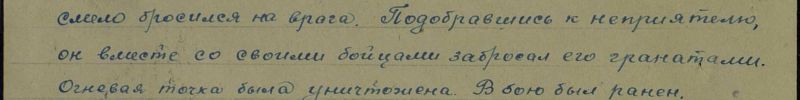 смело бросился на врага. Подобравшись к неприятелю,
он вместе со своими бойцами забросал его гранатами.
Огневая точка была уничтожена. В бою был ранен.